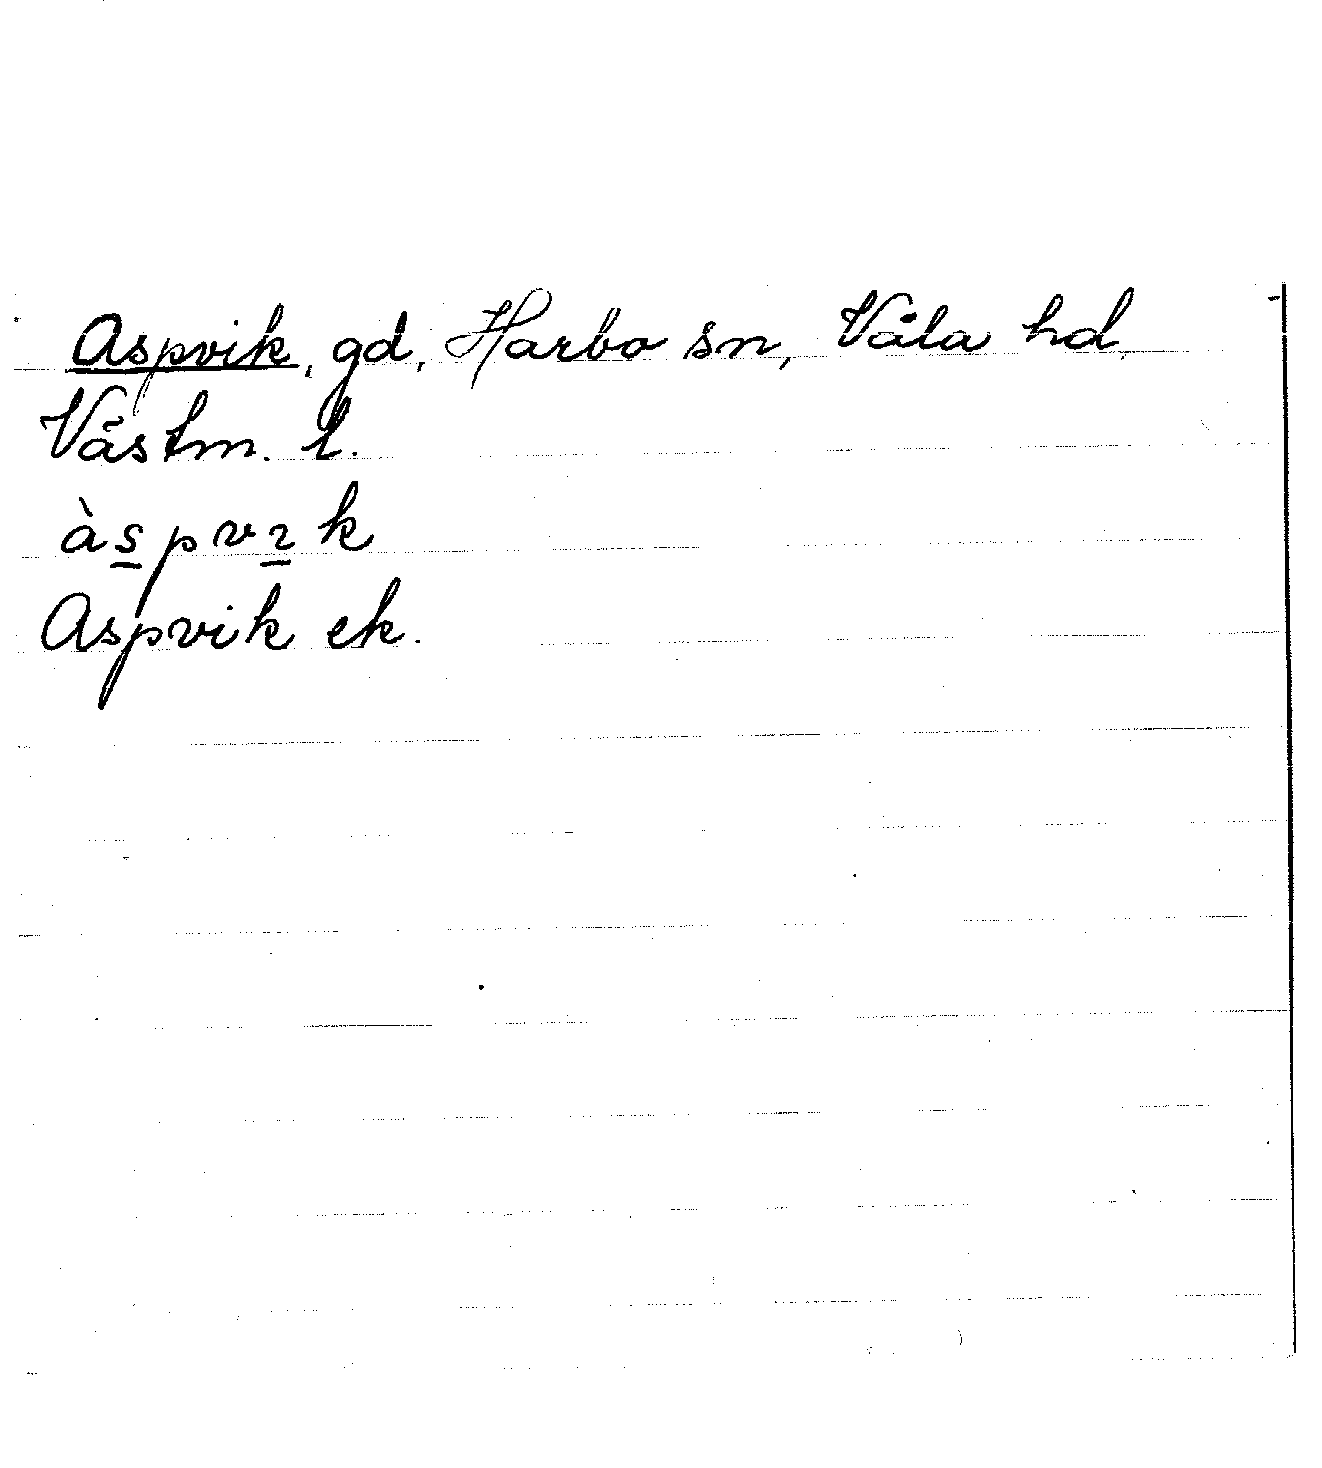 Aspvik, gd, Harbo sn, Våla hd,
Västm. l.
às̲pvɿ̲k
Aspvik ek.